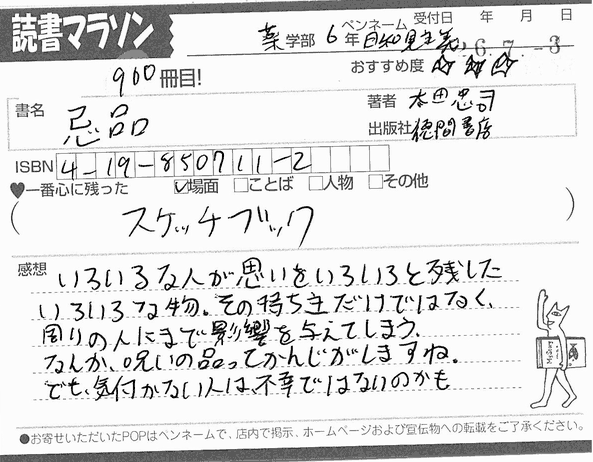 読書マラソン
薬学部 6年 ペンネーム 日和見主義 受付日 年 月 日
6.7.-3
900冊目!
おすすめ度 ☆☆☆
書名 忌品
著者 太田忠司
出版社 徳間書店
ISBN 4-19-850711-2
♥一番心に残った ☑場面 □ことば □人物 □その他
(スケッチブック)
感想
いろいろな人が思いをいろいろと残した
いろいろな物。その持ち主だけではなく、
周りの人にまで影響を与えてしまう。
なんか、呪いの品ってかんじがしますね。
でも、気付かない人は、不幸ではないのかも
●お寄せいただいたPOPはペンネームで、店内で掲示、ホームページおよび宣伝物への転載をご了承ください。